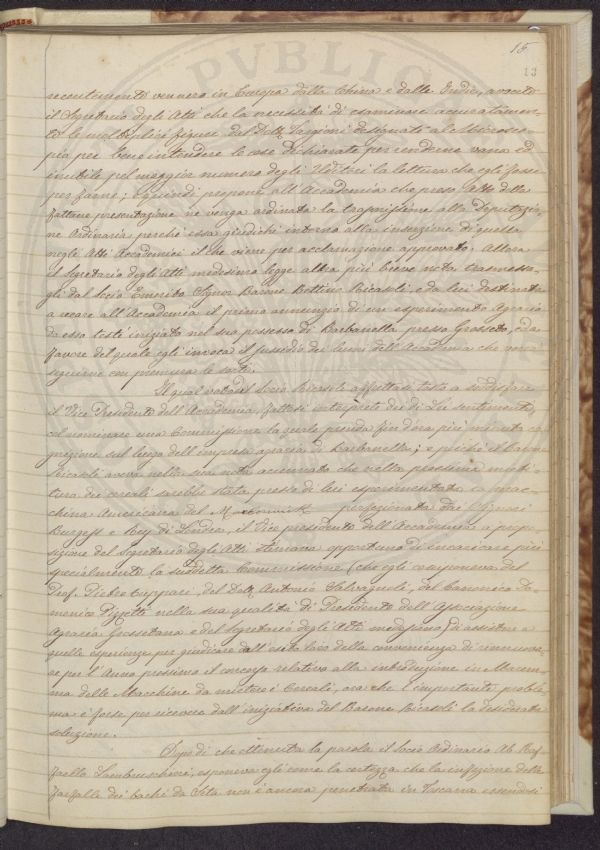 15
13
recentemente vennero in Europa dalla China e dalle Indie, avverte
il Segretario degli Atti che la necessità di esaminare accuratamen-
te le molteplici figure dal Dott. designate al Microsco-
pio per bene intendere le cose dichiarate per renderne vana ed
inutile pel maggior numero degli Uditori la lettura che egli fosse
per farne; e quindi propone all'Accademia che preso Atto della
fattane presentazione ne venga ordinata la trasmissione alla Deputazio-
ne Ordinaria perchè essa giudichi intorno alla inserzione di quella
negli Atti Accademici il che viene per acclamazione approvato. Allora
il Segretario degli Atti medesimo legge altra più breve nota trasmessa-
gli dal Socio Emerito Signor Barone Bettino Ricasoli, e da lui destinata
a recare all'Accademia il primo annunzio di un esperimento Agrario
da esso testè iniziato nel suo possesso di Barbanella presso Grosseto, ed a
favore del quale egli invoca il sussidio dei lumi dell'Accademia che vorrà
seguirne con premura le sorti.
Il qual voto del Socio Ricasoli affrettasi tosto a soddisfare
il Vice Presidente dell'Accademia, fattosi interprete dei di Lei sentimenti,
col nominare una Commissione la quale prenda fin d'ora più minuta co-
gnizione sul luogo dell'impresa agraria di Barbanella; e poichè il Barone
Ricasoli aveva nella sua nota accennato che nella prossima mieti-
tura dei cereali sarebbe stata presso di lui esperimentata la mac-
china Americana del M. Cormick perfezionata dai Signori
Burgess e Key di Londra, il Vice presidente dell'Accademia a propo-
sizione del Segretario degli Atti stimava opportuno di incaricare più
specialmente la suddetta Commissione (che egli componeva del
Prof. Pietro Cuppari, del Dott. Antonio Salvagnoli, del Canonico Do-
menico Pizzetti nella sua qualità di Presidente dell'Associazione
Agraria Grossetana e del Segretario degli Atti medesimo) di assistere a
quelle esperienze per giudicare dall'esito loro della convenienza di rinnuova-
re per l'Anno prossimo il concorso relativo alla introduzione in Marem-
ma delle Macchine da mietere i Cereali, ora che l'importante proble-
ma è forse per ricevere dall'iniziativa del Barone Ricasoli la desiderata
soluzione.
Dopo di che ottenuta la parola il Socio Ordinario Ab. Raf-
faello Lambruschini, esponeva egli come la certezza che la infezione delle
farfalle dei bachi da Seta non è ancora penetrata in Toscana essendosi